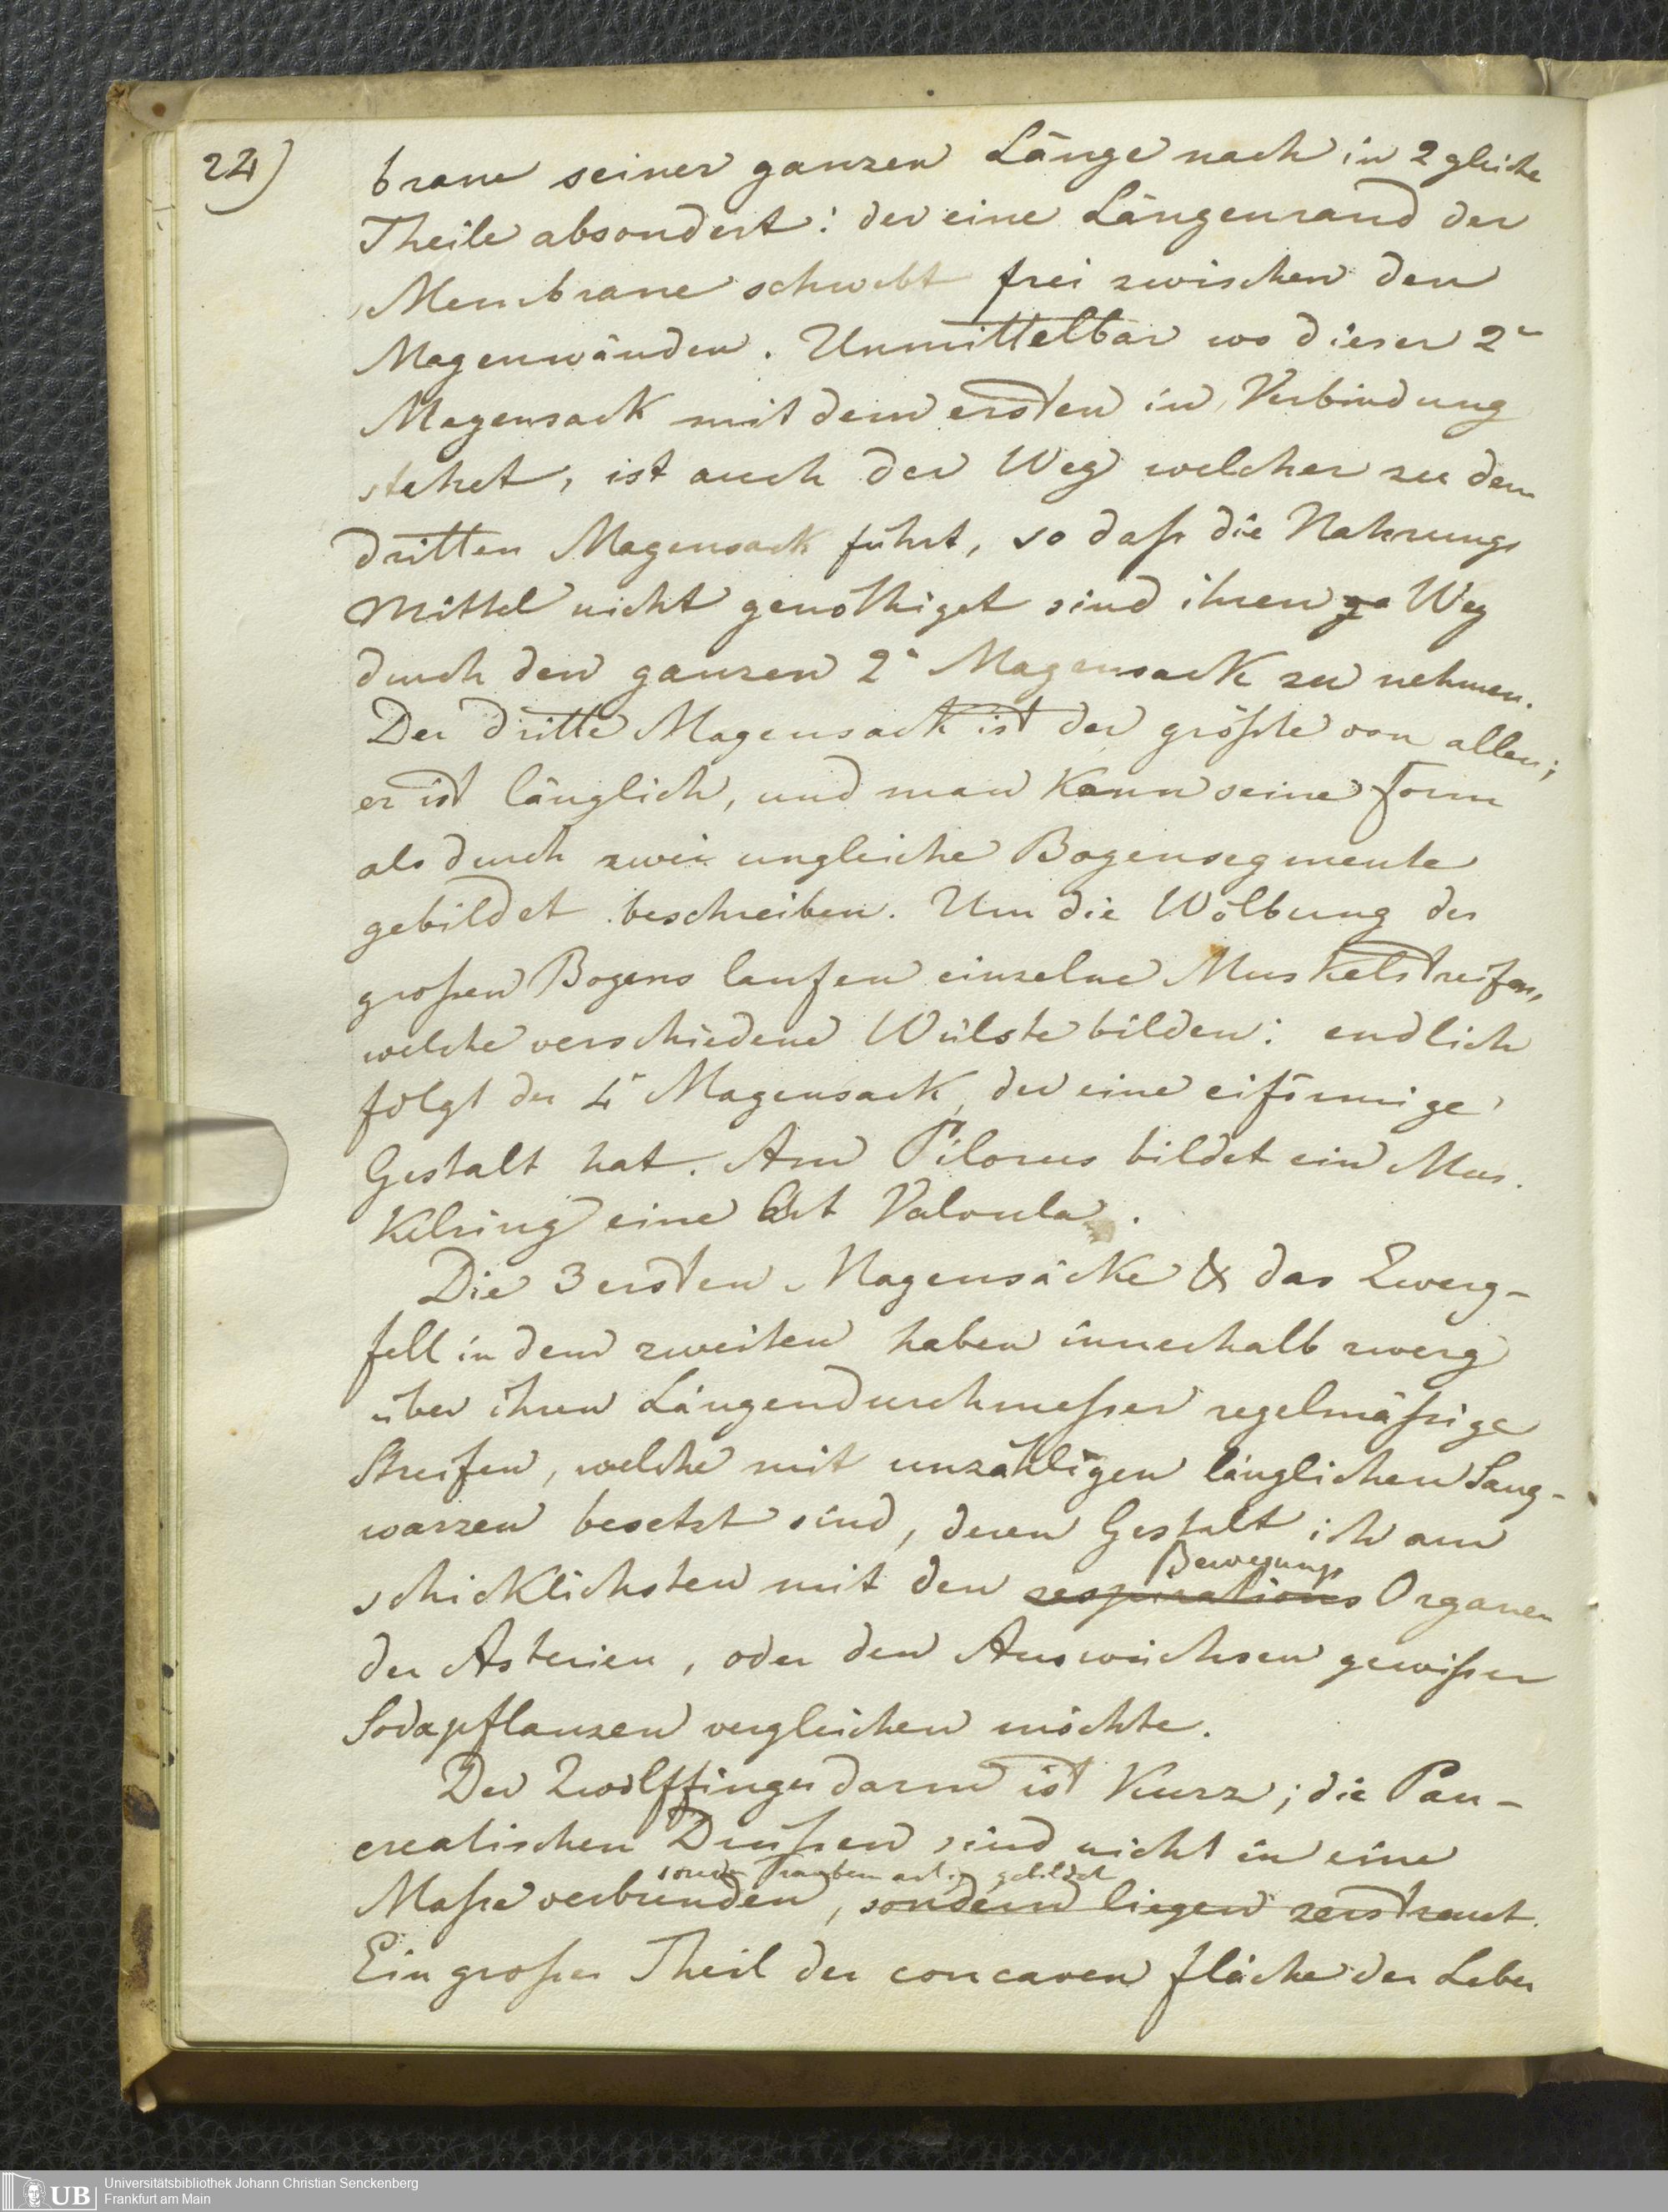 22)
brane seiner ganzen Länge nach in 2 gleiche
Theile absondert: der eine Längenrand der
Membrane schwebt frei zwischen den
Magenwänden. Unmittelbar wo dieser 2r
Magensack mit dem ersten in Verbindung
stehet, ist auch der Weg welcher zu dem
dritten Magensack führt, so daß die Nahrungs
Mittel nicht genöthiget sind ihren ge Weg
durch den ganzen 2n Magensack zu nehmen.
Der dritte Magensack ist der größte von allen;
er ist länglich, und man kann seine Form
als durch zwei ungleiche Bogensegmente
gebildet beschreiben. Um die Wölbung des
großen Bogens laufen einzelne Muskelstreifen,
welche verschiedene Wülste bilden: endlich
folgt der 4r Magensack, der eine eiförmige
Gestalt hat. Am Pilorus bildet ein Mus.
kelring eine Art Valvula.
Die 3 ersten Magensäcke & das Zwerg-
fell in dem zweiten haben innerhalb zwerg
über ihren Längendurchmeßer regelmäßige
Streifen, welche mit unzähligen länglichen Saug-
warzen besetzt sind, deren Gestalt ich am
Bewegungs
schicklichsten mit den respirations Organen
der Asterien, oder den Auswüchsen gewißer
Sodapflanzen vergleichen möchte.
Der Zwölffingerdarm ist kurz; die Pan-
creatischen Drüßen sind nicht in eine
sondn Trauben artig gebildet
Maße verbunden, sondern liegen zerstreut.
Ein großer Theil der concaven Fläche der Leber
Universitätsbibliothek Johann Christian Senckenberg
UB Frankfurt am Main